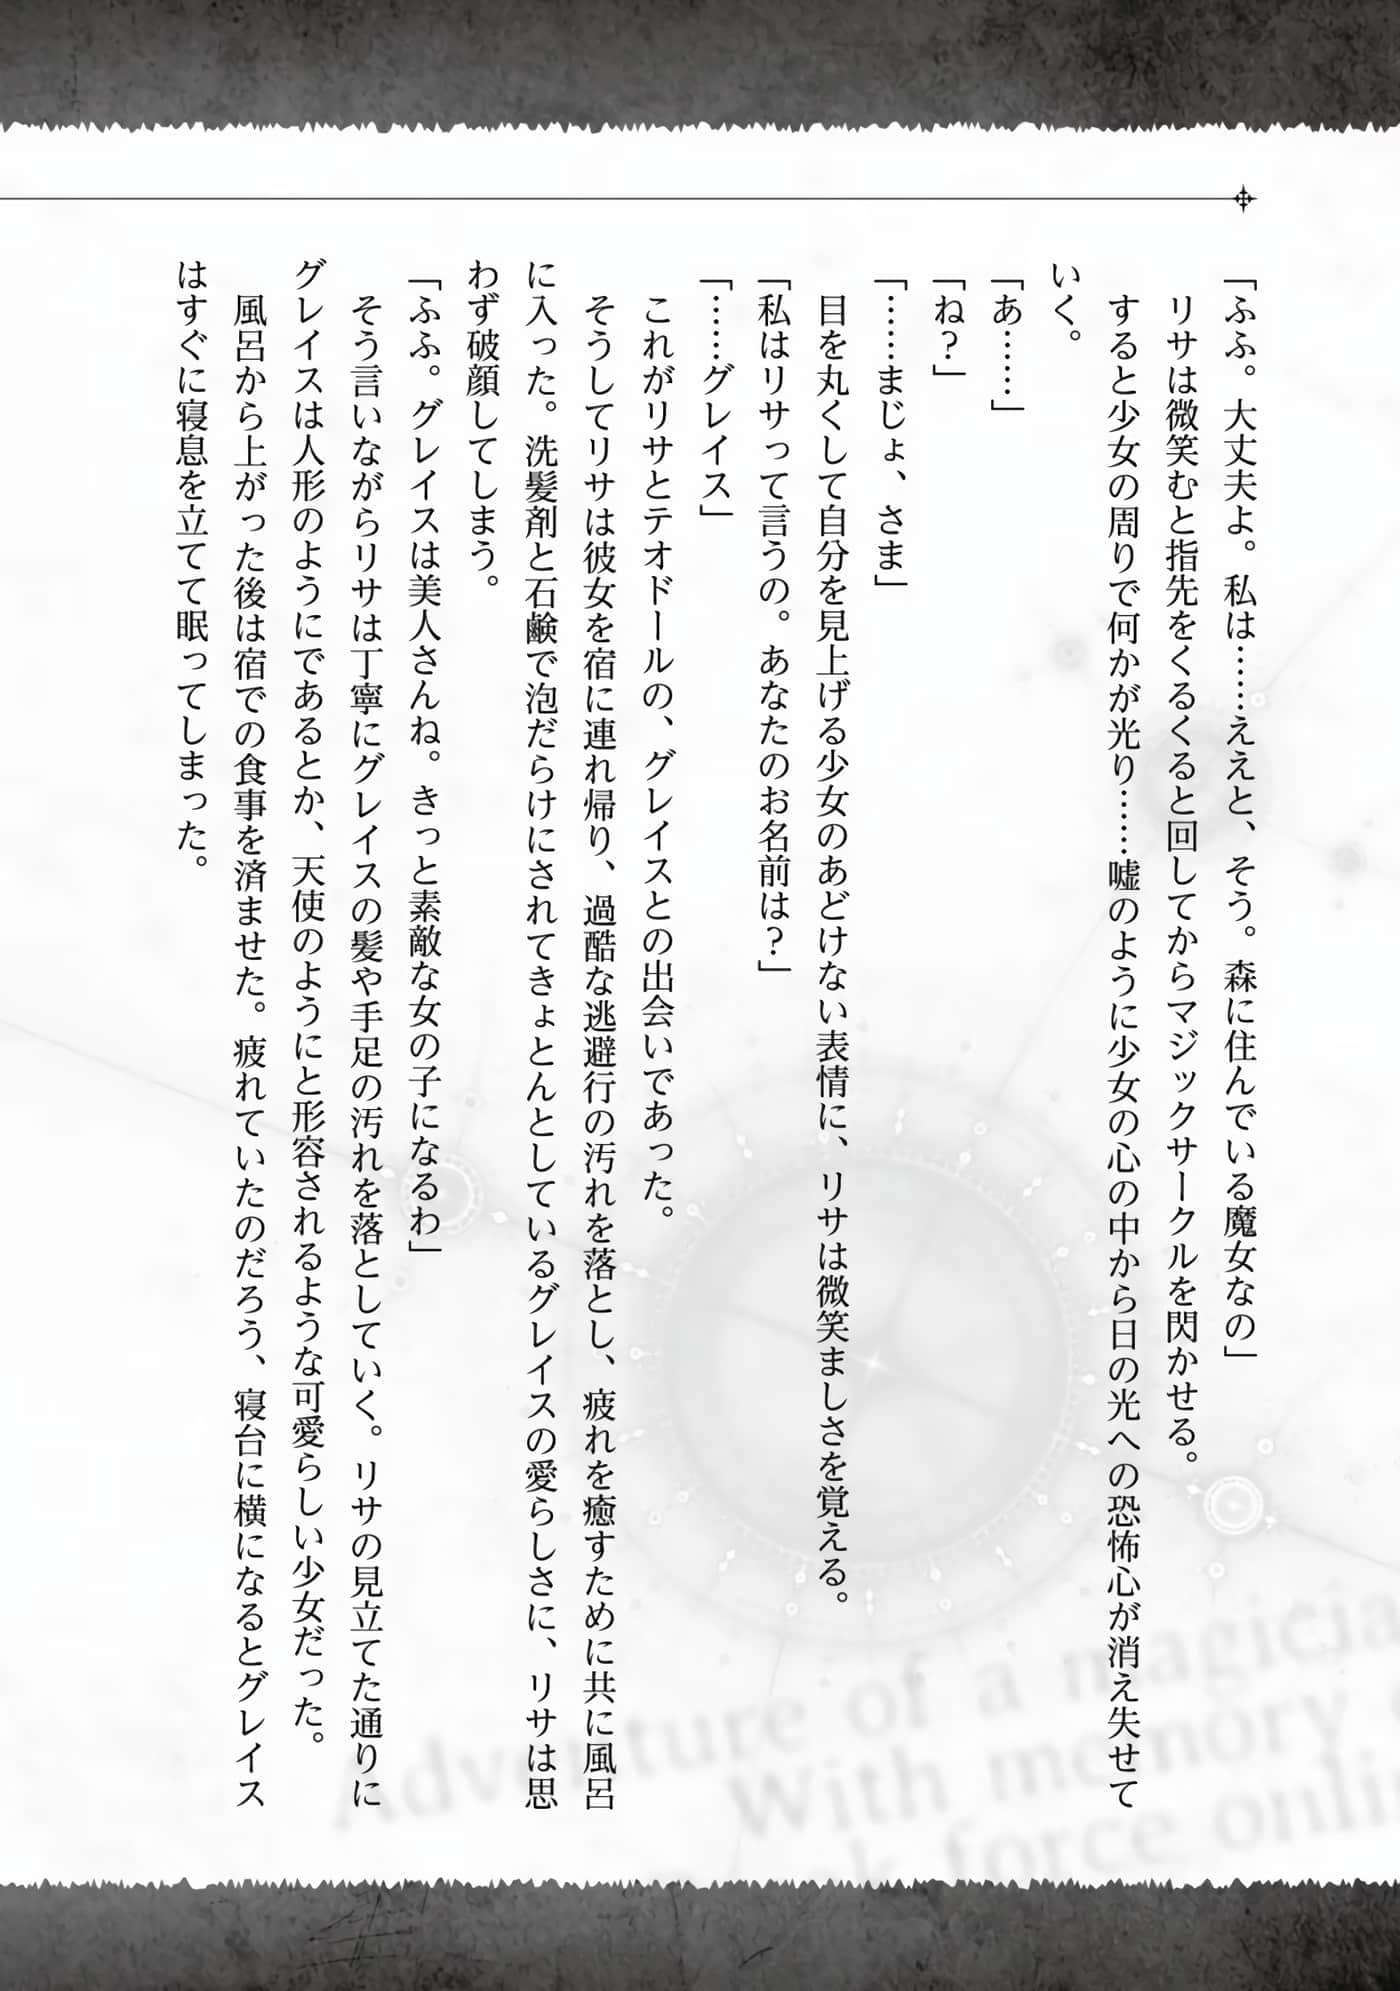 「ふふ。大丈夫よ。私は……ええと、そう。森に住んでいる魔女なの」
リサは微笑むと指先をくるくると回してからマジックサークルを閃かせる。
すると少女の周りで何かが光り……嘘のように少女の心の中から日の光への恐怖心が消え失せて
いく。
「あ……」
「ね？」
「……まじょ、さま」
目を丸くして自分を見上げる少女のあどけない表情に、リサは微笑ましさを覚える。
「私はリサって言うの。あなたのお名前は？」
「……グレイス」
これがリサとテオドールの、グレイスとの出会いであった。
そうしてリサは彼女を宿に連れ帰り、過酷な逃避行の汚れを落とし、疲れを癒すために共に風呂
に入った。洗髪剤と石鹸で泡だらけにされてきょとんとしているグレイスの愛らしさに、リサは思
わず破顔してしまう。
「ふふ。グレイスは美人さんね。きっと素敵な女の子になるわ」
そう言いながらリサは丁寧にグレイスの髪や手足の汚れを落としていく。リサの見立てた通りに
グレイスは人形のようにであるとか、天使のようにと形容されるような可愛らしい少女だった。
風呂から上がった後は宿での食事を済ませた。疲れていたのだろう、寝台に横になるとグレイス
はすぐに寝息を立てて眠ってしまった。
Adventure of a magicia
With memory
force onli